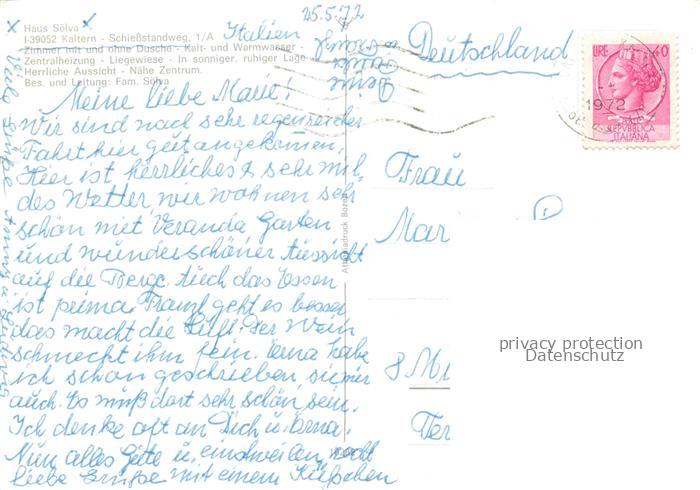 25.5.72
Haus Sölva
I-39052 Kaltern - Schießstandweg, 1/A
Zimmer mit und ohne Dusche - Kalt- und Warmwasser -
Zentralheizung - Liegewiese - In sonniger, ruhiger Lage
Herrliche Aussicht - Nähe Zentrum.
Bes. und Leitung: Fam. Sölva
Italien
Meine liebe
Wir sind nach sehr regenreicher
Fahrt hier gut angekommen.
Hier ist herrliches & sehr mil-
des Wetter, wir wohnen sehr
schön mit Veranda Garten
und wunderschöner Aussicht
auf die Berge. Auch das Essen
ist prima. Franzl geht es besser
das macht die Luft. Der Wein
schmeckt ihm fein. Erna habe
ich schon geschrieben, sie mir
auch. Es muß dort sehr schön sein.
Ich denke oft an Dich u. Erna.
Nun alles Gute u. einstweilen recht
liebe Grüße mit einem Küßchen
Deine
Viele Grüße
Deutschland
LIRE 40
1972
REPVBBLICA
ITALIANA
Frau
Mar
8 Mü
Ter
privacy protection
Datenschutz